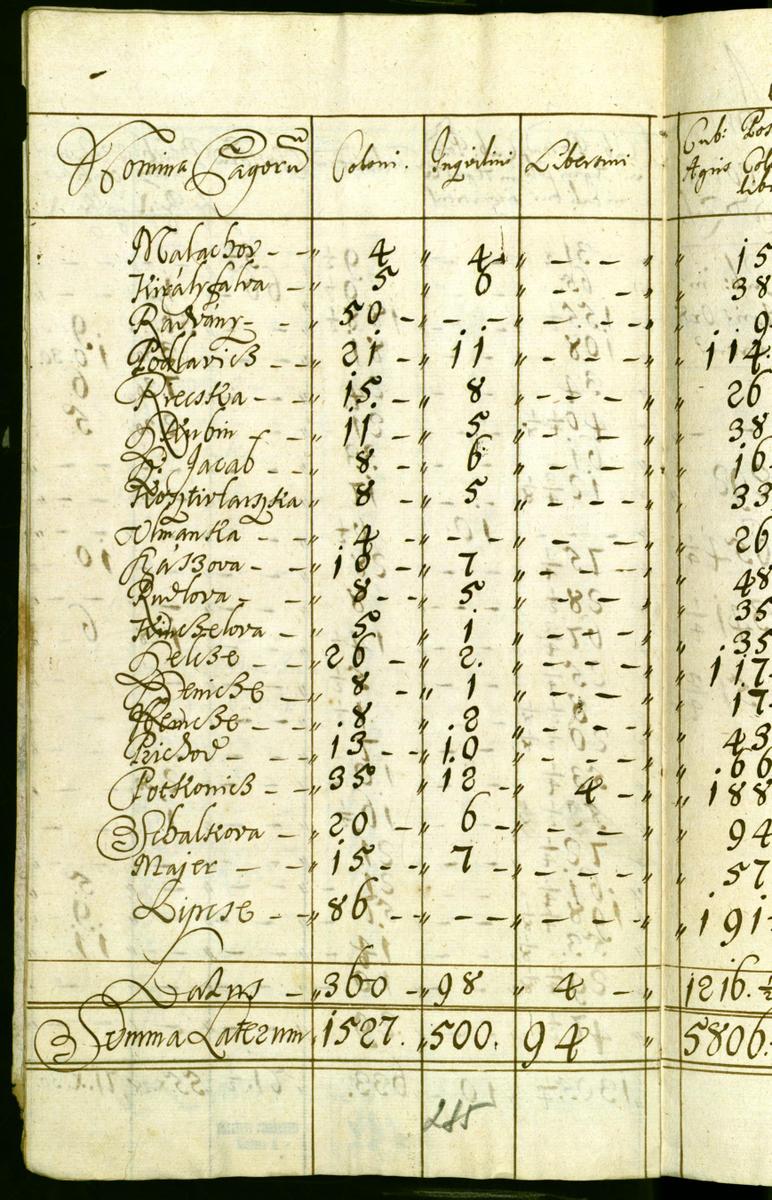 Nomina Pagorũ Coloni. Inqvilini Libertini Cub: Agris Pos Col lib
Malachov - - " 4 " 4 " - - - " " 15
Királyfalva - " 5 " 6 " - - - " " 38
Radvány - - " 50 - " - - - " - - - " " 9
Podlavicz - " 21 - " 11 " - - - " " 114.
Riecska - - " 15. - " 8 " - - - " " 26
Hrubin - - " 11 - " 5 " - - - " " 38
S. Jacab - " 8 - " 6 " - - - " " 16
Kosztivlarszka " 8 - " 5 " - - - " " 33
Ulmanka - " 4 - " - - - " - - - " " 26
Kaszova - - " 18 - " 7 " - - - " " 48
Rudlova - - " 8 - - " 5 " - - - " " 35
Kinczelova - " 5 - " 1 " - - - " " 35
Selcze - - " 26 - " 2. " - - - " " 117
Senicze - - " 8 - " 1 " - - - " " 17
Nemcze - - " 8 - " 2 " - - - " " 43
Prichod - - " 13 - - " 10 " - - - " " 66
Potkonicz - " 35 " 12 - " 4 - " " 188
Sebalkova - " 20 - " 6 - " - - - " " 94
Majer - - - " 15 - " 7 - " - - - " " 57
Lipcse - - " 86 - - " - - - " - - - " " 191
Latus - " 360 " 98 " 4 - " 1216. ½
Summa Laterum. 1527. " 500. 94 " 5806.
285